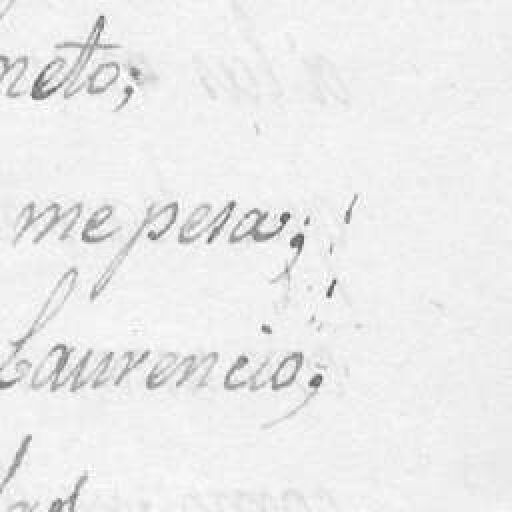 neto;
me pesa;
Laurencio;